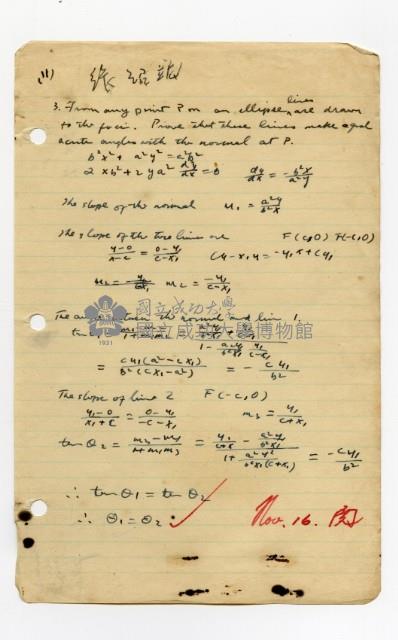 (11)
3. From any point P on an ellipse, lines are drawn
to the foci. Prove that these lines make equal
acute angles with the normal at P.
b²x² + a²y² = a²b²
2xb² + 2ya² dy/dx = 0 dy/dx = -b²x/a²y
The slope of the normal m₁ = a²y/b²x
The slope of the two lines are F(c,0) F(-c,0)
(y-0)/(x-c) = (0-y₁)/(c-x₁)
m₂ = -y₁/(c-x₁)
The angle between the normal and line 1.
國立成功大學
國立成功大學博物館
1931
= cy₁(a²-cx₁)/b²(cx₁-a²) = -cy₁/b²
The slope of line 2 F(-c,0)
(y₁-0)/(x₁+c) = (0-y₁)/(-c-x₁) m₃ = y₁/(c+x₁)
tan θ₂ = (m₃-m₁)/(1+m₁m₃) = (y₁/(c+x₁) - a²y₁/b²x₁)/(1 + a²y₁²/b²x₁(c+x₁)) = -cy₁/b²
∴ tan θ₁ = tan θ₂
∴ θ₁ = θ₂
Nov. 16.